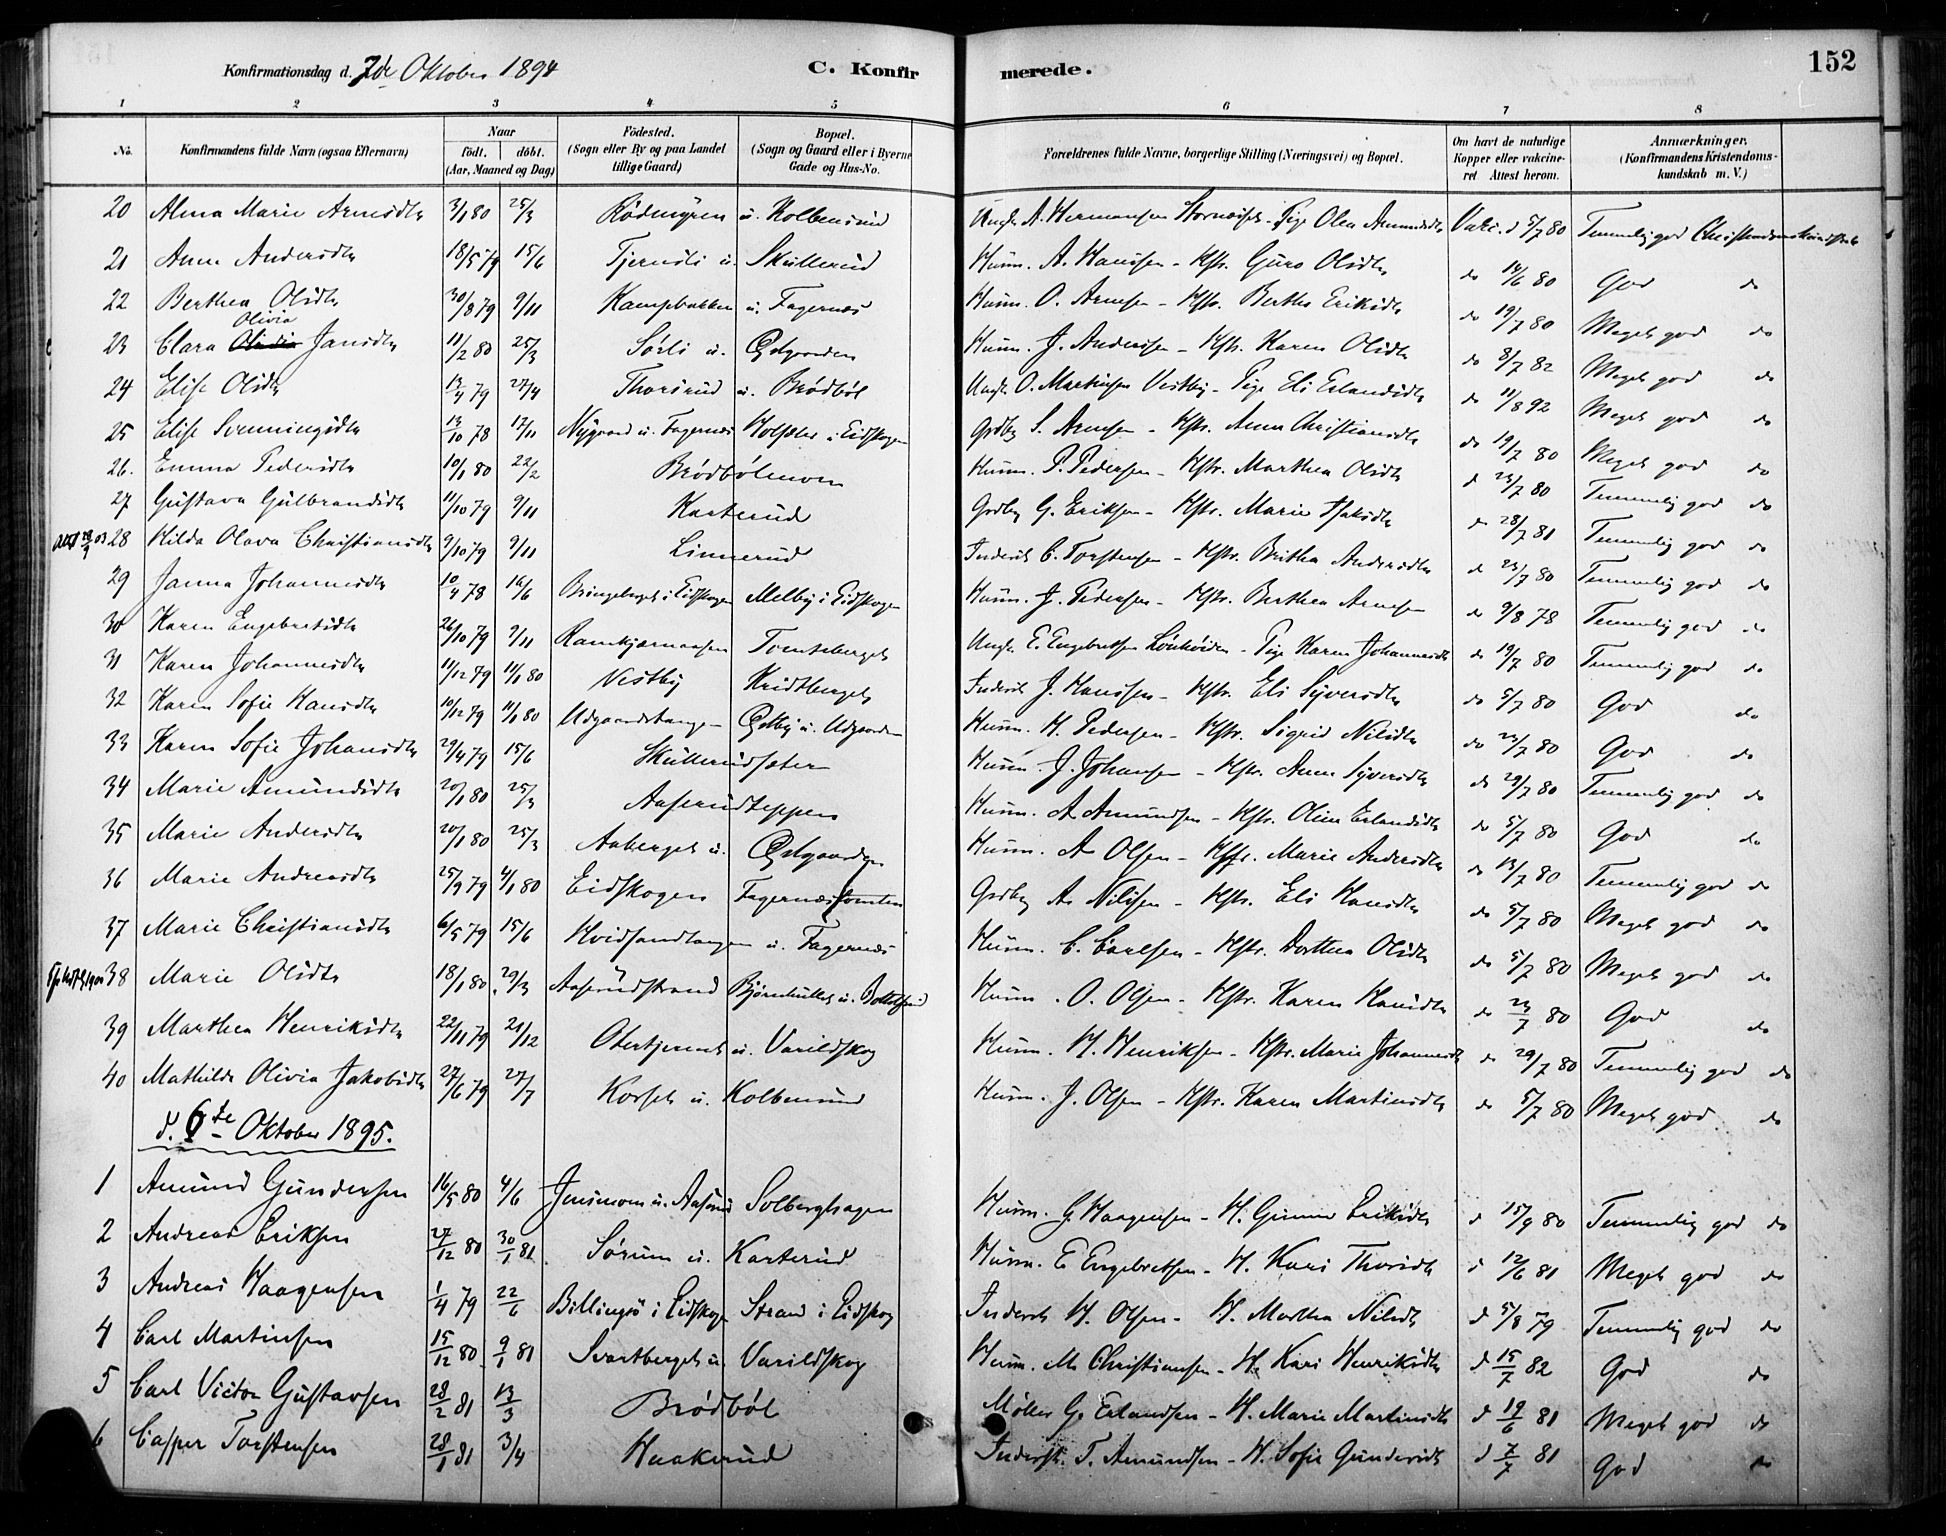 Konfirmationsdag d. 7de Oktober 1894 C. Konfirmerede. 152
1 2 3 4 5 6 7 8
No. Konfirmandens fulde Navn (ogsaa Efternavn) Naar födt. döbt. (Aar, Maaned og Dag) Födested. (Sogn eller By og paa Landet tillige Gaard) Bopæl. (Sogn og Gaard eller i Byerne Gade og Hus-No. Forældrenes fulde Navne, borgerlige Stilling (Næringsvei) og Bopæl. Om havt de naturlige Kopper eller vakcineret Attest herom. Anmærkninger. (Konfirmandens Kristendomskundskab m. V.)
20 Alma Marie Arnesdtr 3/1 80 25/3 Rödmyren u. Kolbensrud Ungk. A. Hermansen - Pige Olea Amundsdtr Vacc. d 5/7 80 Temmelig god Christendomskundskab
21 Anne Andersdtr 18/5 79 15/6 Tjernsli u. Skullerud Husm. A. Hansen - Hstr. Guro Olsdtr do 14/6 80 God do
22 Berthea Olsdtr 30/8 79 9/11 Kampebakken u. Fagernæs Husm. O. Arnesen - Hstr. Berthe Eriksdtr do 19/7 80 Meget god do
23 Clara Olivia Jansdtr 11/2 80 25/3 Sørli u. Østgaarden Husm. J. Andersen - Hstr. Karen Olsdtr do 8/7 82 Meget god do
24 Elise Olsdtr 13/4 79 27/4 Thorsrud u. Brødbøl Ungk. O. Martinsen Vestby - Pige Eli Erlandsdtr do 11/8 92 Meget god do
25 Elise Svenningsdtr 13/10 78 17/11 Nygaard u. Fagernæs i Eidskogen Grdbr. S. Arnesen - Hstr. Anne Christiansdtr do 19/7 80 Meget god do
26. Emma Pedersdtr 10/1 80 22/2 Brødbølmoen Husm. P. Pedersen - Hstr. Marthea Olsdtr d 23/7 80 Temmelig god do
27 Gustava Gulbrandsdtr 11/10 79 9/11 Karterud Grdbr. G. Eriksen - Hstr. Marie Isaksdtr do 28/7 81 Temmelig god do
28 Hilda Olava Christiansdtr 9/10 79 9/11 Linnerud Inderst C. Torstensen - Hstr. Brithea Andersdtr d 23/7 80 Temmelig god do
29 Janna Johannesdtr 10/4 78 16/6 i Eidskogen Melby i Eidskogen Husm. J. Pedersen - Hstr. Berthea Arnesen do 9/8 78 Temmelig god do
30 Karen Engebretsdtr 26/10 79 9/11 Ramkjærnaasen Tomteberget Ungk. E. Engebretsen - Pige Karen Johannesdtr do 19/7 80 Temmelig god do
31 Karen Johannesdtr 11/12 79 11/1 80 Vestby Kridtberget Inderst J. Hansen - Hstr. Eli Syversdtr do 5/7 80 God do
32 Karen Sofie Hansdtr 10/12 79 11/1 80 Udgaardstangen Østby u. Udgaarden Husm. H. Pedersen - Hstr. Sigrid Nilsdtr do 23/7 80 God do
33 Karen Sofie Johansdtr 29/4 79 15/6 Skullerudsæter Husm. J. Johansen - Hstr. Anne Syversdtr do 29/7 80 Temmelig god do
34 Marie Amundsdtr 20/1 80 25/3 Aaserudteppen Husm. A Amundsen - Hstr. Oline Erlandsdtr do 5/7 80 God do
35 Marie Andersdtr 20/1 80 25/3 Aaberget u. Østgaarden Husm. A Olsen - Hstr. Marie Andersdtr do 13/7 80 Temmelig god do
36 Marie Andreasdtr 25/9 79 4/1 80 Eidskogen Fagernæstomten Grdbr. A. Nilsen - Hstr. Eli Hansdtr do 5/7 80 Meget god do
37 Marie Christiansdtr 6/5 79 15/6 Hvidsandtangen u. Fagernæs Husm. C. Carlsen - Hstr. Dorthea Olsdtr do 5/7 80 Meget god do
38 Marie Olsdtr 18/1 80 29/3 Aaserudstrand Husm. O. Olsen - Hstr. Karen Hansdtr do 23/7 80 God do
39 Marthea Henriksdtr 22/11 79 21/12 Otertjernet u. Varildskog Husm. H. Henriksen - Hstr. Marie Johannesdtr do 29/7 80 Temmelig god do
40 Mathilde Olivia Jakobsdtr 27/6 79 27/7 Korset u. Kolbensrud Husm. J. Olsen - Hstr. Karen Martinsdtr do 5/7 80 Meget god do
d. 6te Oktober 1895.
1 Amund Gundersen 16/5 80 4/6 Jensmoen u. Aaserud Solberghagen Husm. G. Haagensen - H. Gunnor Eriksdtr d 15/9 80 Temmelig god do
2 Andreas Eriksen 27/12 80 30/1 81 Sørum u. Karterud Husm. E Engebretsen - H. Kari Thorsdtr d 12/6 81 Meget god do
3 Andreas Haagensen 1/4 79 22/6 Billingsø i Eidskog Strand i Eidskog Inderst H. Olsen - H. Marthea Nilsdtr d 5/8 79 Temmelig god do
4 Carl Martinsen 15/12 80 9/1 81 Svartberget u. Varildskog Husm. M. Christiansen - H. Kari Henriksdtr d 15/7 82 God do
5 Carl Victor Gustavsen 28/2 81 13/3 Brødbøl Møller G. Erlandsen - H. Marie Martinsdtr d 19/6 81 Meget god do
6 Casper Torstensen 28/1 81 3/4 Haakerud Inderst. T. Amundsen - H. Sofie Gundersdtr d 7/7 81 God do